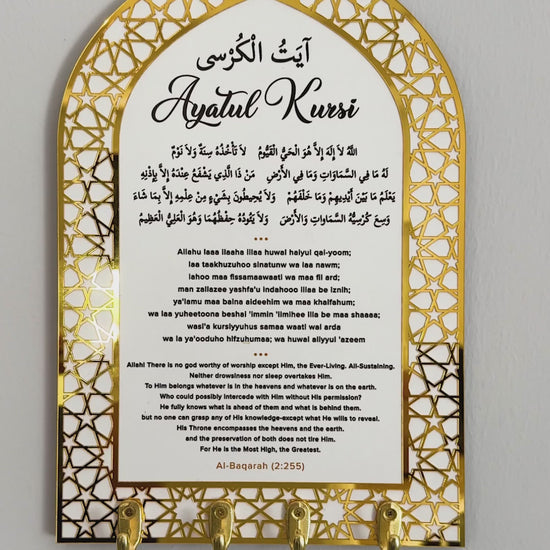 آيَتُ الْكُرْسِى
Ayatul Kursi
اللَّهُ لاَ إِلَهَ إِلاَّ هُوَ الْحَيُّ الْقَيُّومُ لاَ تَأْخُذُهُ سِنَةٌ وَلاَ نَوْمٌ
لَهُ مَا فِي السَّمَاوَاتِ وَمَا فِي الأَرْضِ مَنْ ذَا الَّذِي يَشْفَعُ عِنْدَهُ إِلاَّ بِإِذْنِهِ
يَعْلَمُ مَا بَيْنَ أَيْدِيهِمْ وَمَا خَلْفَهُمْ وَلاَ يُحِيطُونَ بِشَيْءٍ مِنْ عِلْمِهِ إِلاَّ بِمَا شَاءَ
وَسِعَ كُرْسِيُّهُ السَّمَاوَاتِ وَالأَرْضَ وَلاَ يَئُودُهُ حِفْظُهُمَا وَهُوَ الْعَلِيُّ الْعَظِيمُ
Allahu laaa ilaaha illaa huwal haiyul qai-yoom;
laa taakhuzuhoo sinatunw wa laa nawm;
lahoo maa fissamaawaati wa maa fil ard;
man zallazee yashfa'u indahooo illaa be iznih;
ya'lamu maa baina aideehim wa maa khalfahum;
wa laa yuheetoona beshai 'immin 'ilmihee illa be maa shaaaa;
wasi'a kursiyyuhus samaa waati wal arda
wa la ya'ooduho hifzuhumaa; wa huwal aliyyul 'azeem
Allah! There is no god worthy of worship except Him, the Ever-Living. All-Sustaining.
Neither drowsiness nor sleep overtakes Him.
To Him belongs whatever is in the heavens and whatever is on the earth.
Who could possibly intercede with Him without His permission?
He fully knows what is ahead of them and what is behind them.
but no one can grasp any of His knowledge-except what He wills to reveal.
His Throne encompasses the heavens and the earth.
and the preservation of both does not tire Him.
For He is the Most High, the Greatest.
Al-Baqarah (2:255)